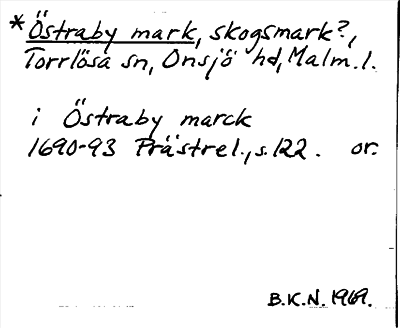 *Östraby mark, skogsmark?,
Torrlösa sn, Onsjö hd, Malm. l.
i Östraby marck
1690-93 Prästrel., s. 122. or.
B.K.N. 1969.